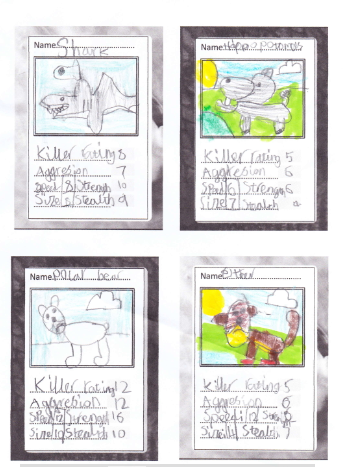 Name Shark
Killer rating 8
Aggresion 7
Speed 8 Strength 10
Size 8 Stealth 9
Name
Killer rating 5
Aggresion 6
Speed 6 Strength 6
Size 7 Stealth
Name Polar bear
Killer rating 12
Aggresion 12
Strength 16
Stealth 10
Name
Killer rating 5
Aggresion
Stealth